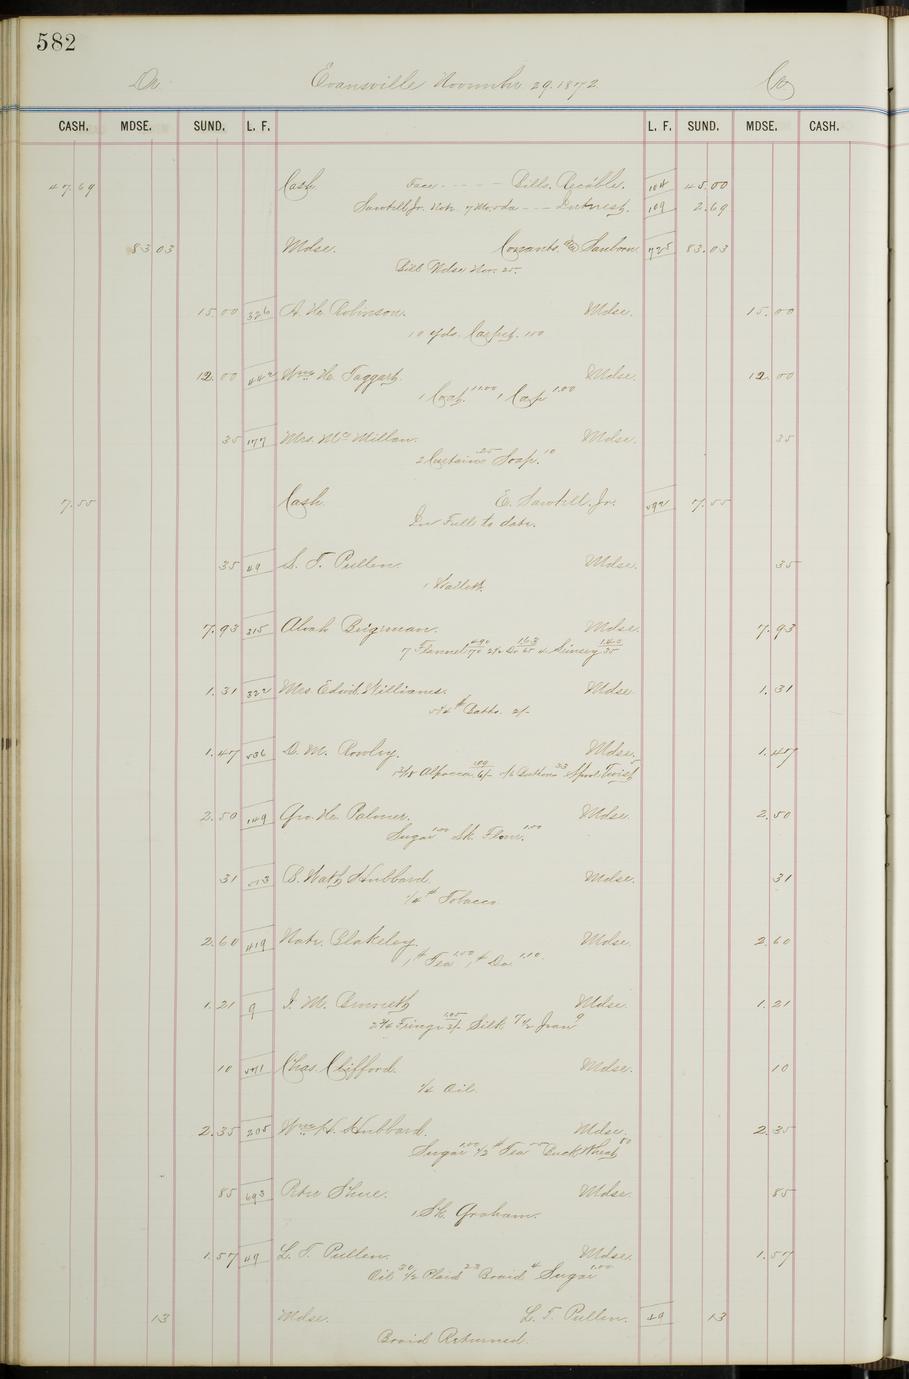 582
Dr. Evansville November 29. 1872 Cr.
CASH. MDSE. SUND. L. F. L. F. SUND. MDSE. CASH.
47.69 Cash. Face - - - - Bills. Recible. 104 45.00
Sawtell Jr. Note 7 Mo. - - - Interest. 109 2.69
83 03 Mdse. & Sanborn 725 83.03
Bill Mdse Nov. 25.
15.00 326 A. H. Robinson. Mdse. 15.00
10 yds. Carpet. 150
12.00 Wm H. Taggart. Mdse. 12.00
1 Coat. 11.00 1 Cap 1.00
35 177 Mrs. Mc Millan. Mdse. 35
2 Curtains 25 Soap. 10
7.55 Cash. E. Sawtell. Jr. 592 7.55
In Full to date.
35 49 L. T. Pullen. Mdse. 35
1
7.93 315 Alvah Mdse. 7.93
7 Flannel 490 70 Do 163 65 4 140 35
1.31 322 Mrs. Edwd. Williams. Mdse 1.31
5 1/4 # Batts. 2/-
1.47 536 D. M. Rowley. Mdse. 1.47
Alpacca 109 6/- Buttons 33 Spool Twist 5
2.50 149 Geo. H. Palmer. Mdse. 2.50
Sugar 1.00 Sk. Flour. 1.50
31 513 B. Hubbard. Mdse. 31
1/4 # Tobacco
2.60 419 Blakeley. Mdse. 2.60
1 # Tea 1.50 1 # Do. 1.10
1.21 9 I. M. Bennett Mdse. 1.21
Fringe 2/- Silk 7 1/2 Jean 9
10 571 Chas. Clifford. Mdse. 10
1/4 Oil.
2.35 205 Wm H. Hubbard. Mdse. 2.35
Sugar 1.00 1/2 # Tea Buck Wheat 80
85 693 Peter Shue. Mdse. 85
1 Sk. Graham.
1.57 49 L. T. Pullen. Mdse. 1.57
Oil 30 1/2 Plaid 23 Braid 4 Sugar 1.00
13 Mdse. L. T. Pullen. 49 13
Braid Returned.